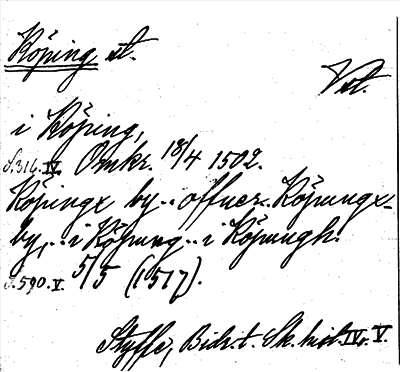 Köping, st.
Vstl.
i Köping,
S. 316. IV. Omkr. 18/4 1502.
Köpingx by .. offuer Köpungx-
by, .. i Köpung .. i Köpungh.
S. 590. V. 5/5 (1517).
Styffe, Bidr. t. Sk. hist. IV. V.